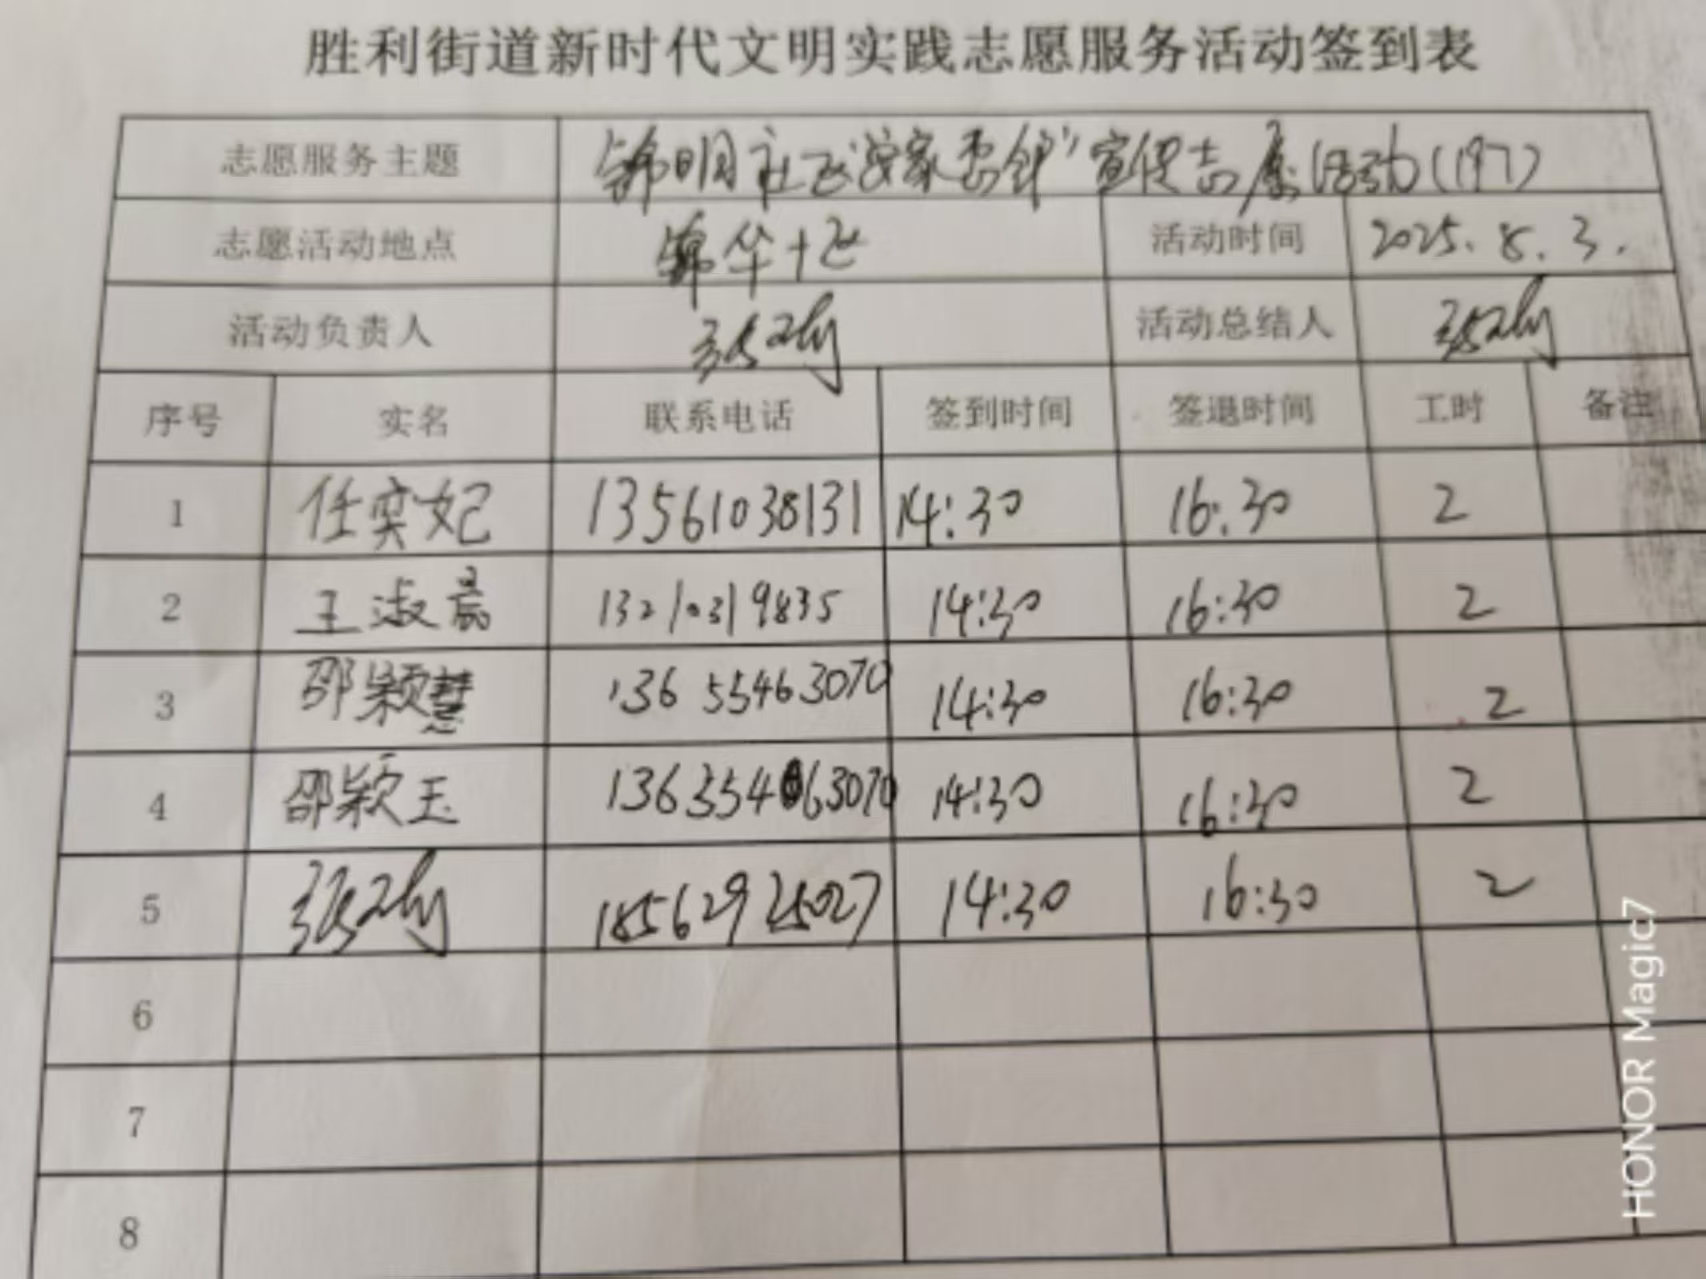 胜利街道新时代文明实践志愿服务活动签到表
志愿服务主题 锦明社区"安家 "宣 志愿活动(197)
志愿活动地点 锦华十区 活动时间 2025.8.3.
活动负责人 张 活动总结人 张
序号 实名 联系电话 签到时间 签退时间 工时 备注
1 任奕妃 13561038131 14:30 16:30 2
2 王淑晨 13210319835 14:30 16:30 2
3 邵颖慧 13655463070 14:30 16:30 2
4 邵颖玉 14:30 16:30 2
5 张 18562925027 14:30 16:30 2
6
7
8
HONOR Magic7